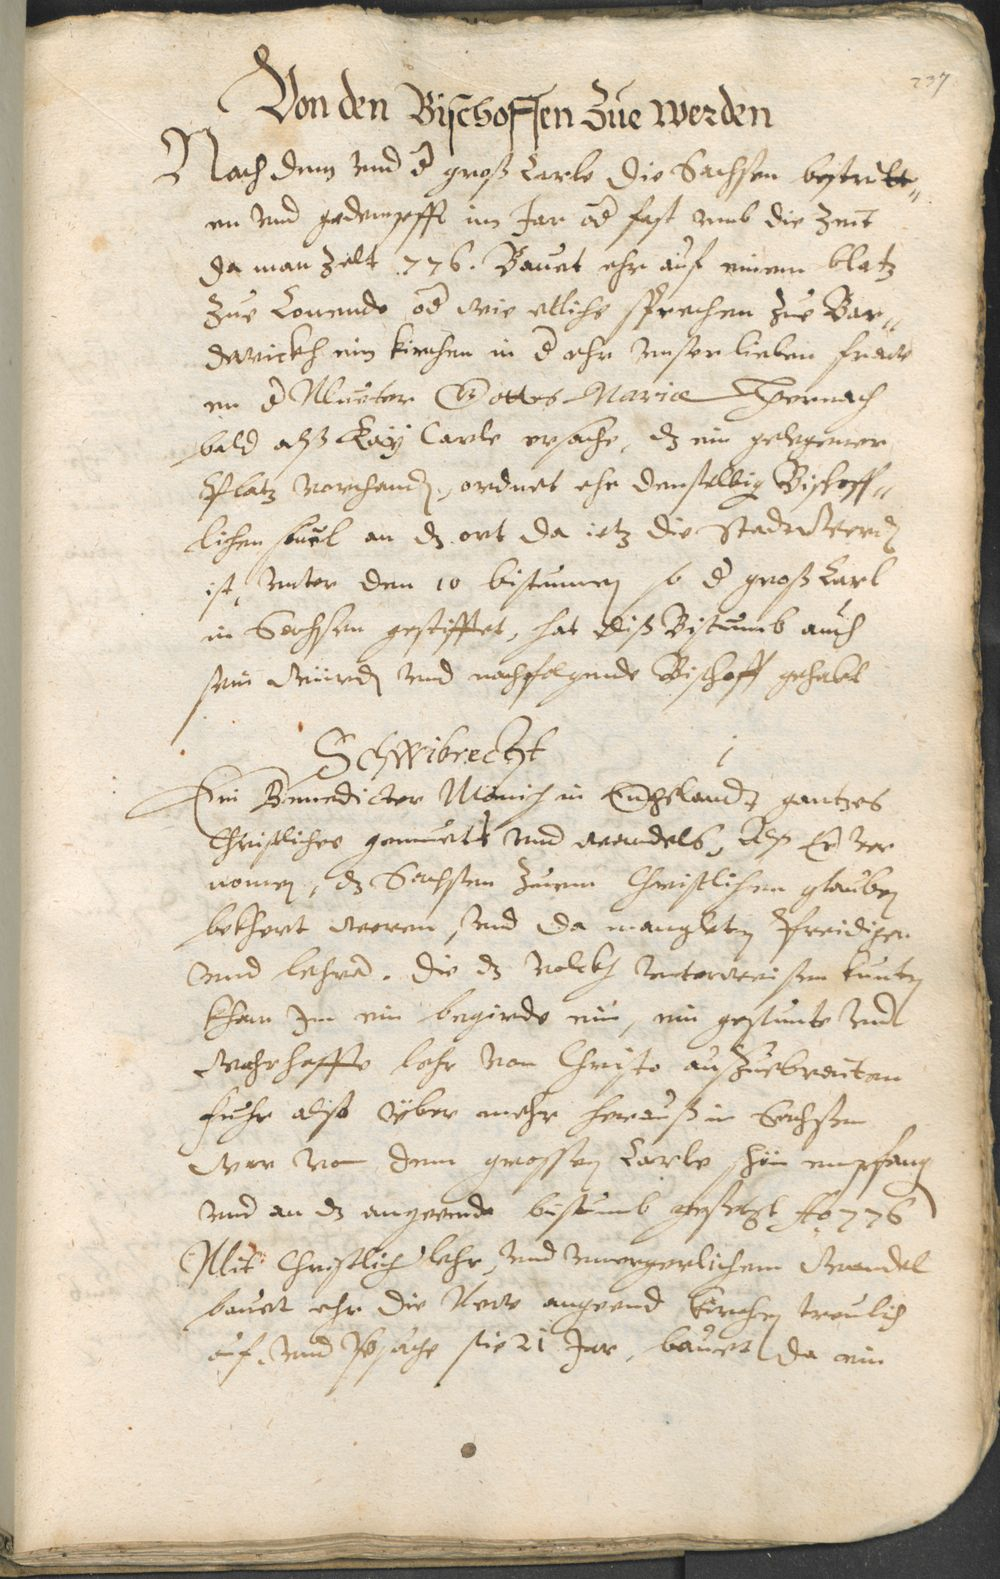 237
Von den Bischoffen Zue Werden
Nach dem vnd d groß Carle die Sachsen bestritt„
en vnd gedempfft im Jar od fast vmb die Zeit
da man Zelt .776. Bauet ehr auf einem blatz
Zue Conende od wie etliche sprechen Zue Bar„
dewickh ein kirchen in d ehr vnser lieben fraw
en d Mueter Gottes Maria Hernach
bald alß Kay Carle ersahe, dz ein gelegener
Platz vorhand, ordnet ehr denselbig Bischoff„
lichen stuel an dz ort da ietz die Stadt Werd
ist, vnter den 10 bistumen so d groß Carl
in Sachsen gestifftet, hat diß Bistumb auch
sein würd vnd nachfolgende Bischoff gehabt
Schwibrecht 1
Ein Benedicter Mönich in Engelandt gantzes
Christliches gemuets vnd wandels, Alß Er ver
nomen, dz Sachsen Zuem Christlichen glauben
bekhert weren, vnd da mangleten Preidiger
vnd lehrer. die dz volckh vnterweisen kunten
kham Im ein begirde ein, ein gesunte vnd
wahrhaffte lehr von Christo außZuebreiten
fuhr also yber mehr herauß in Sachsen
war von dem grossen Carle schön empfang
vnd an dz angeende bistumb gesetzt Ao 776
Mit Christlich lehr, vnd vnergerlichem wandel
bauet ehr die New angeend kirchen treulich
auf, vnd besahe sie 21 Jar, bauet da ein